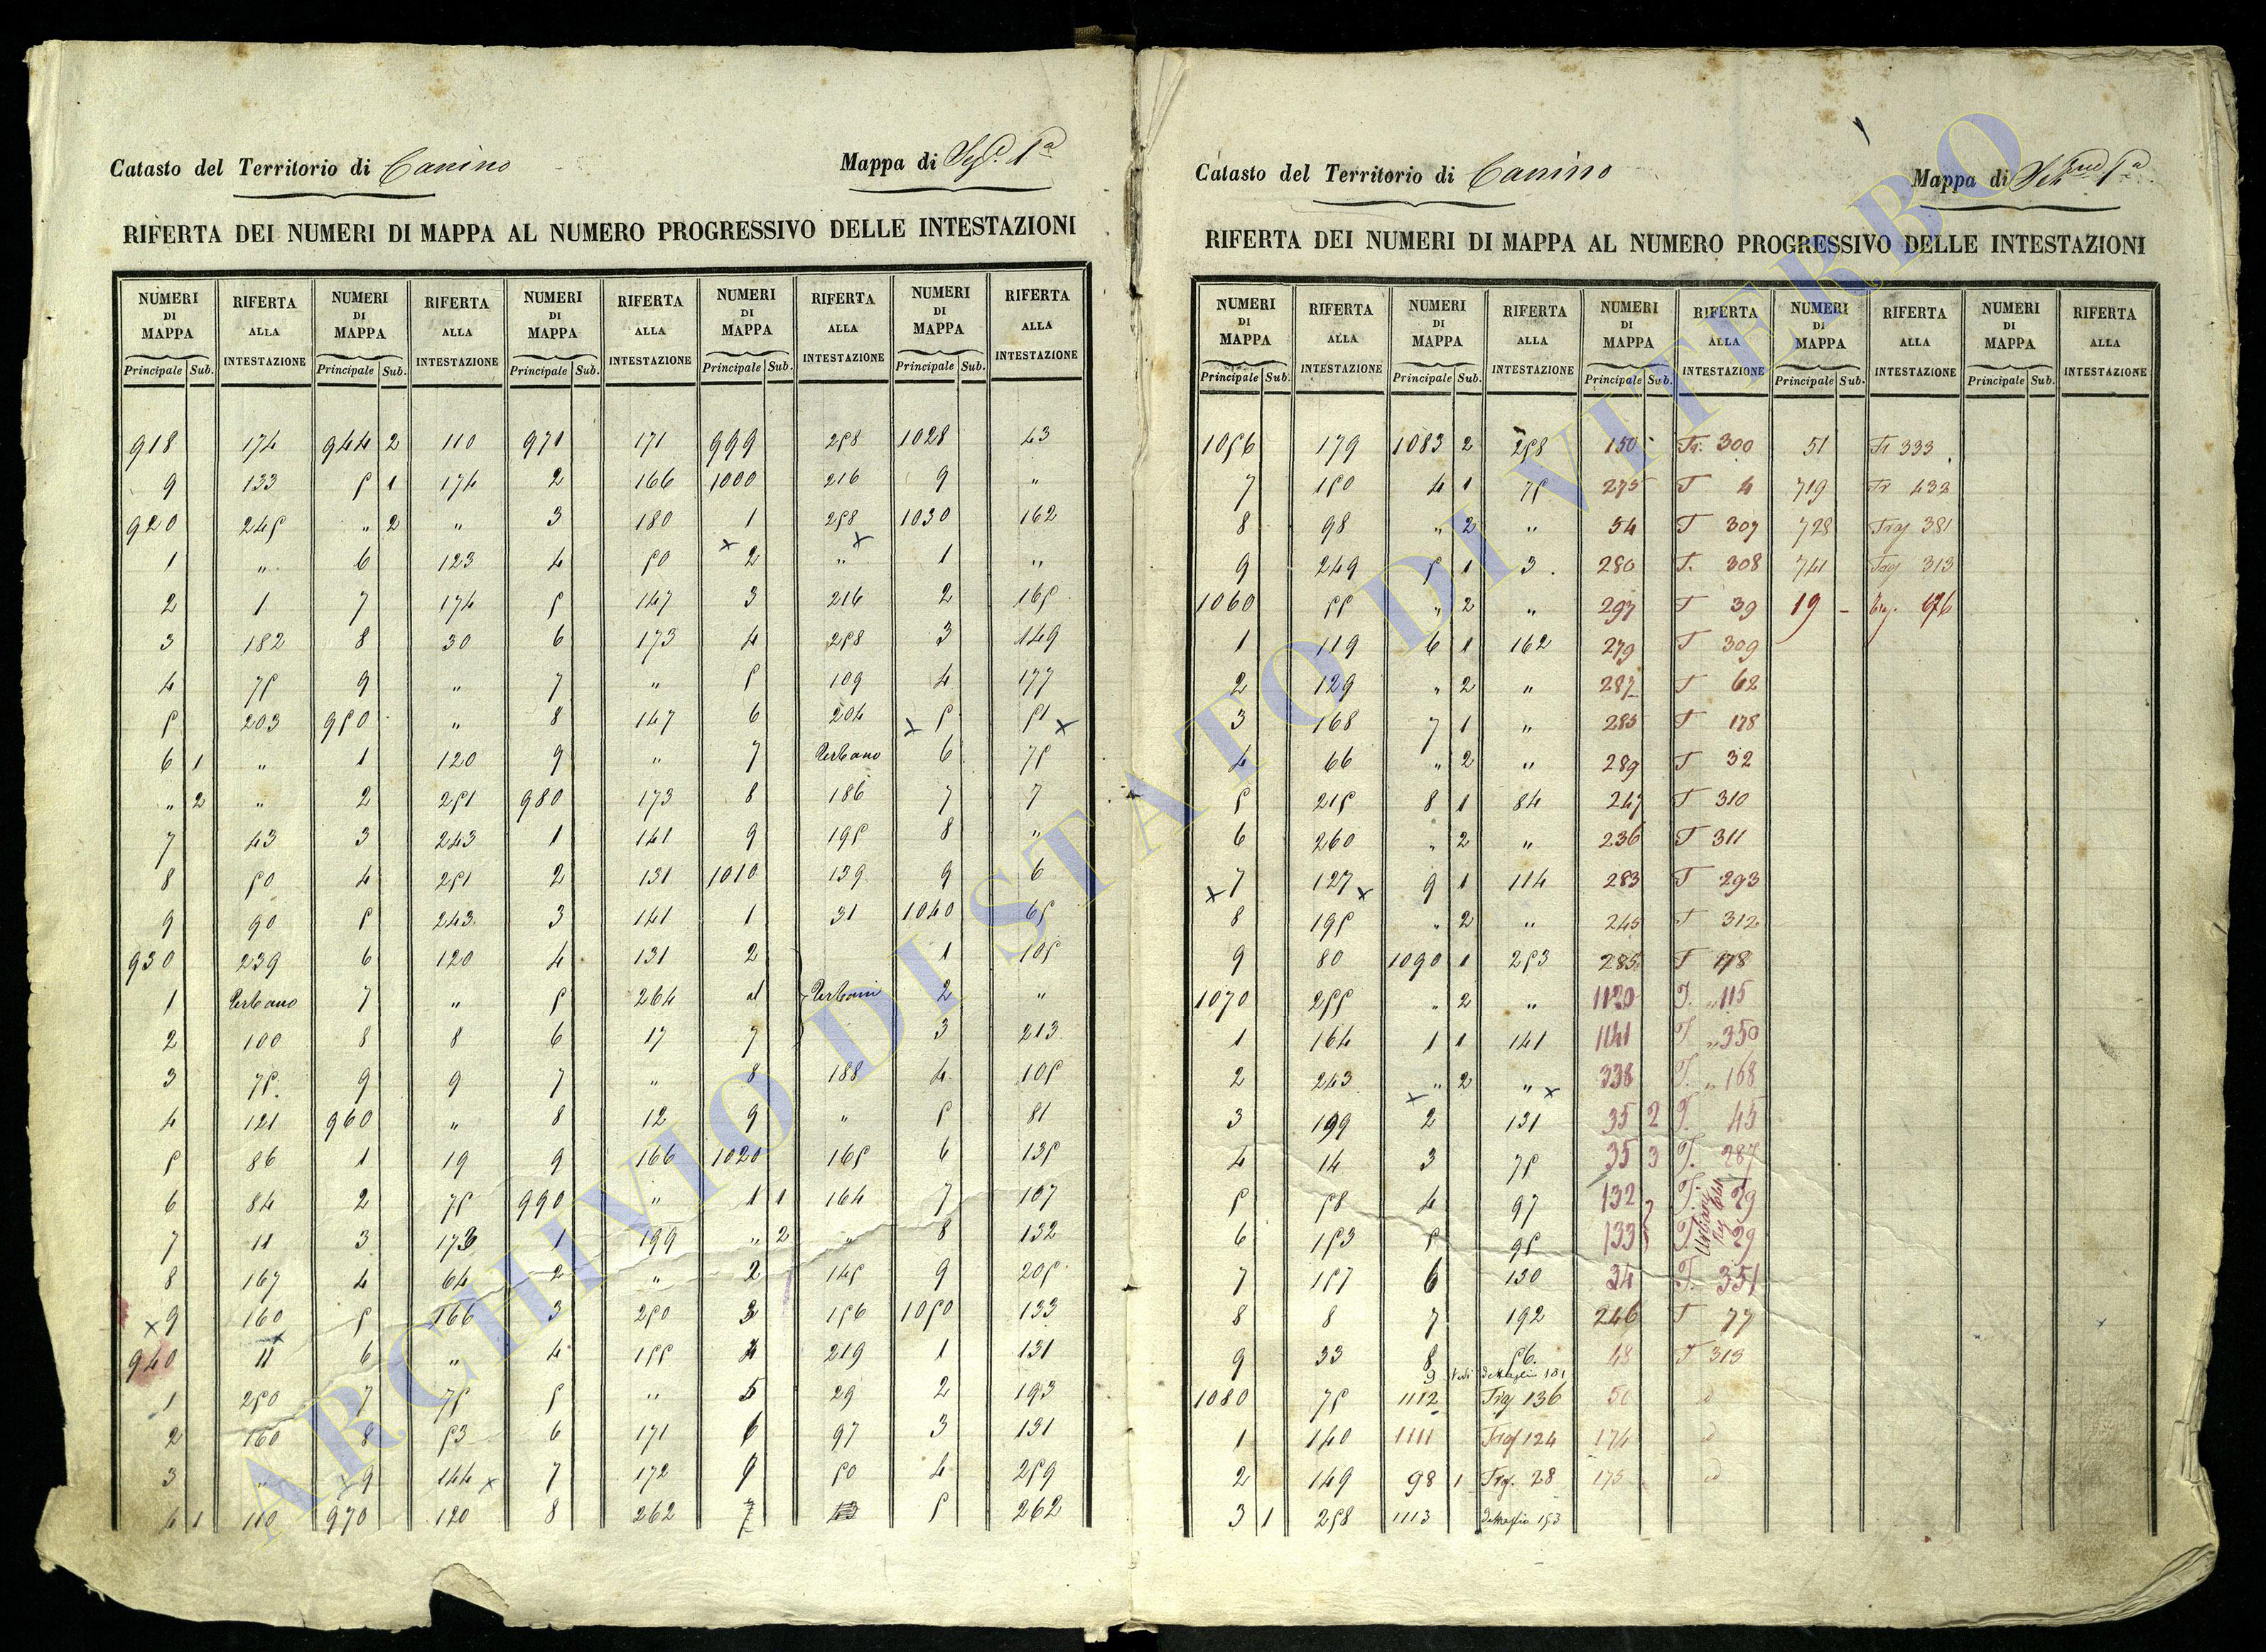 Catasto del Territorio di Canino Mappa di Sez.e 1a
RIFERTA DEI NUMERI DI MAPPA AL NUMERO PROGRESSIVO DELLE INTESTAZIONI
NUMERI DI MAPPA RIFERTA ALLA INTESTAZIONE NUMERI DI MAPPA RIFERTA ALLA INTESTAZIONE NUMERI DI MAPPA RIFERTA ALLA INTESTAZIONE NUMERI DI MAPPA RIFERTA ALLA INTESTAZIONE NUMERI DI MAPPA RIFERTA ALLA INTESTAZIONE
Principale Sub. Principale Sub. Principale Sub. Principale Sub. Principale Sub.
918 174 944 2 110 971 171 999 258 1028 43
9 133 5 1 174 2 166 1000 216 9 "
920 245 " 2 " 3 180 1 258 1030 162
1 " 6 123 4 50 x 2 " x 1 "
2 1 7 174 5 147 3 216 2 165
3 182 8 30 6 173 4 258 3 149
4 75 9 " 7 " 5 109 4 177
5 203 950 " 8 147 6 204 x 5 51 x
6 1 " 1 120 9 " 7 Urbano 6 75
" 2 " 2 251 980 173 8 186 7 7
7 43 3 243 1 141 9 195 8 "
8 50 4 251 2 131 1010 139 9 6
9 90 5 243 3 141 1 31 1040 65
930 239 6 120 4 131 2 1 105
1 Urbano 7 " 5 264 al Urbani 2 "
2 100 8 8 6 17 7 3 213
3 75 9 9 7 " 8 188 4 105
4 121 960 " 8 12 9 " 5 81
5 86 1 19 9 166 1020 165 6 135
6 84 2 75 990 " 1 1 164 7 107
7 11 3 173 1 199 " 2 " 8 132
8 167 4 64 2 " 2 145 9 205
x 9 160 x 5 166 3 250 3 156 1050 133
940 11 6 " 4 155 4 219 1 131
1 250 7 75 5 " 5 29 2 193
2 160 8 53 6 171 6 97 3 131
3 " x 9 144 x 7 172 9 50 4 259
4 1 110 970 120 8 262 5 262
Catasto del Territorio di Canino Mappa di Sez.ne 1a
RIFERTA DEI NUMERI DI MAPPA AL NUMERO PROGRESSIVO DELLE INTESTAZIONI
NUMERI DI MAPPA RIFERTA ALLA INTESTAZIONE NUMERI DI MAPPA RIFERTA ALLA INTESTAZIONE NUMERI DI MAPPA RIFERTA ALLA INTESTAZIONE NUMERI DI MAPPA RIFERTA ALLA INTESTAZIONE NUMERI DI MAPPA RIFERTA ALLA INTESTAZIONE
Principale Sub. Principale Sub. Principale Sub. Principale Sub. Principale Sub.
1056 179 1083 2 258 150 Tr. 300 51 Tr 333
7 150 4 1 75 275 T 4 719 Tr 433
8 98 " 2 " 54 T 307 728 Trg 381
9 249 5 1 3 280 T. 308 741 Trg 313
1060 55 " 2 " 297 T 39 19 - Trg. 676
1 119 6 1 162 279 T 309
2 129 " 2 " 287 T 62
3 168 7 1 " 285 T 178
4 66 " 2 " 289 T 32
5 215 8 1 84 247 T 310
6 260 " 2 " 236 T 311
x 7 127 x 9 1 114 283 T 293
8 195 " 2 " 245 T 312
9 80 1090 1 253 285 T 178
1070 255 " 2 " 1120 T. " 115
1 164 1 1 141 1141 T " 350
2 243 x " 2 " x 338 T. " 168
3 199 2 131 35 2 T. 45
4 14 3 75 35 3 T. 287
5 58 4 97 132 T. 29
6 153 5 95 133 T. 29
7 157 6 130 34 T. 351
8 8 7 192 246 T 77
9 33 8 56 48 T 313
9 Vedi dettaglio 101
1080 75 1112 Trg 136 50 d
1 140 1111 Trg 124 174 d
2 149 98 1 Trg. 28 175 d
3 1 258 1113 Dettaglio 153
ARCHIVIO DI STATO DI VITERBO